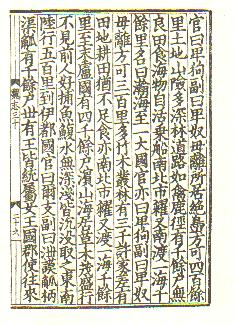 官曰卑狗副曰卑奴母離所居絶島方可四百餘
里土地山險多深林道路如禽鹿徑有千餘戸無
良田食海物自活乗船南北市糴又南渡一海千
餘里名曰瀚海至一大國官亦曰卑狗副曰卑奴
母離方可三百里多竹木叢林有三千許家差有
田地耕田猶不足食亦南北市糴又渡一海千餘
里至末盧國有四千餘戸濱山海居草木茂盛行
不見前人好捕魚鰒水無深淺皆沈没取之東南
陸行五百里到伊都國官曰爾支副曰泄謨觚柄
二十六
渠觚有千餘戸世有王皆統屬女王國郡使往來